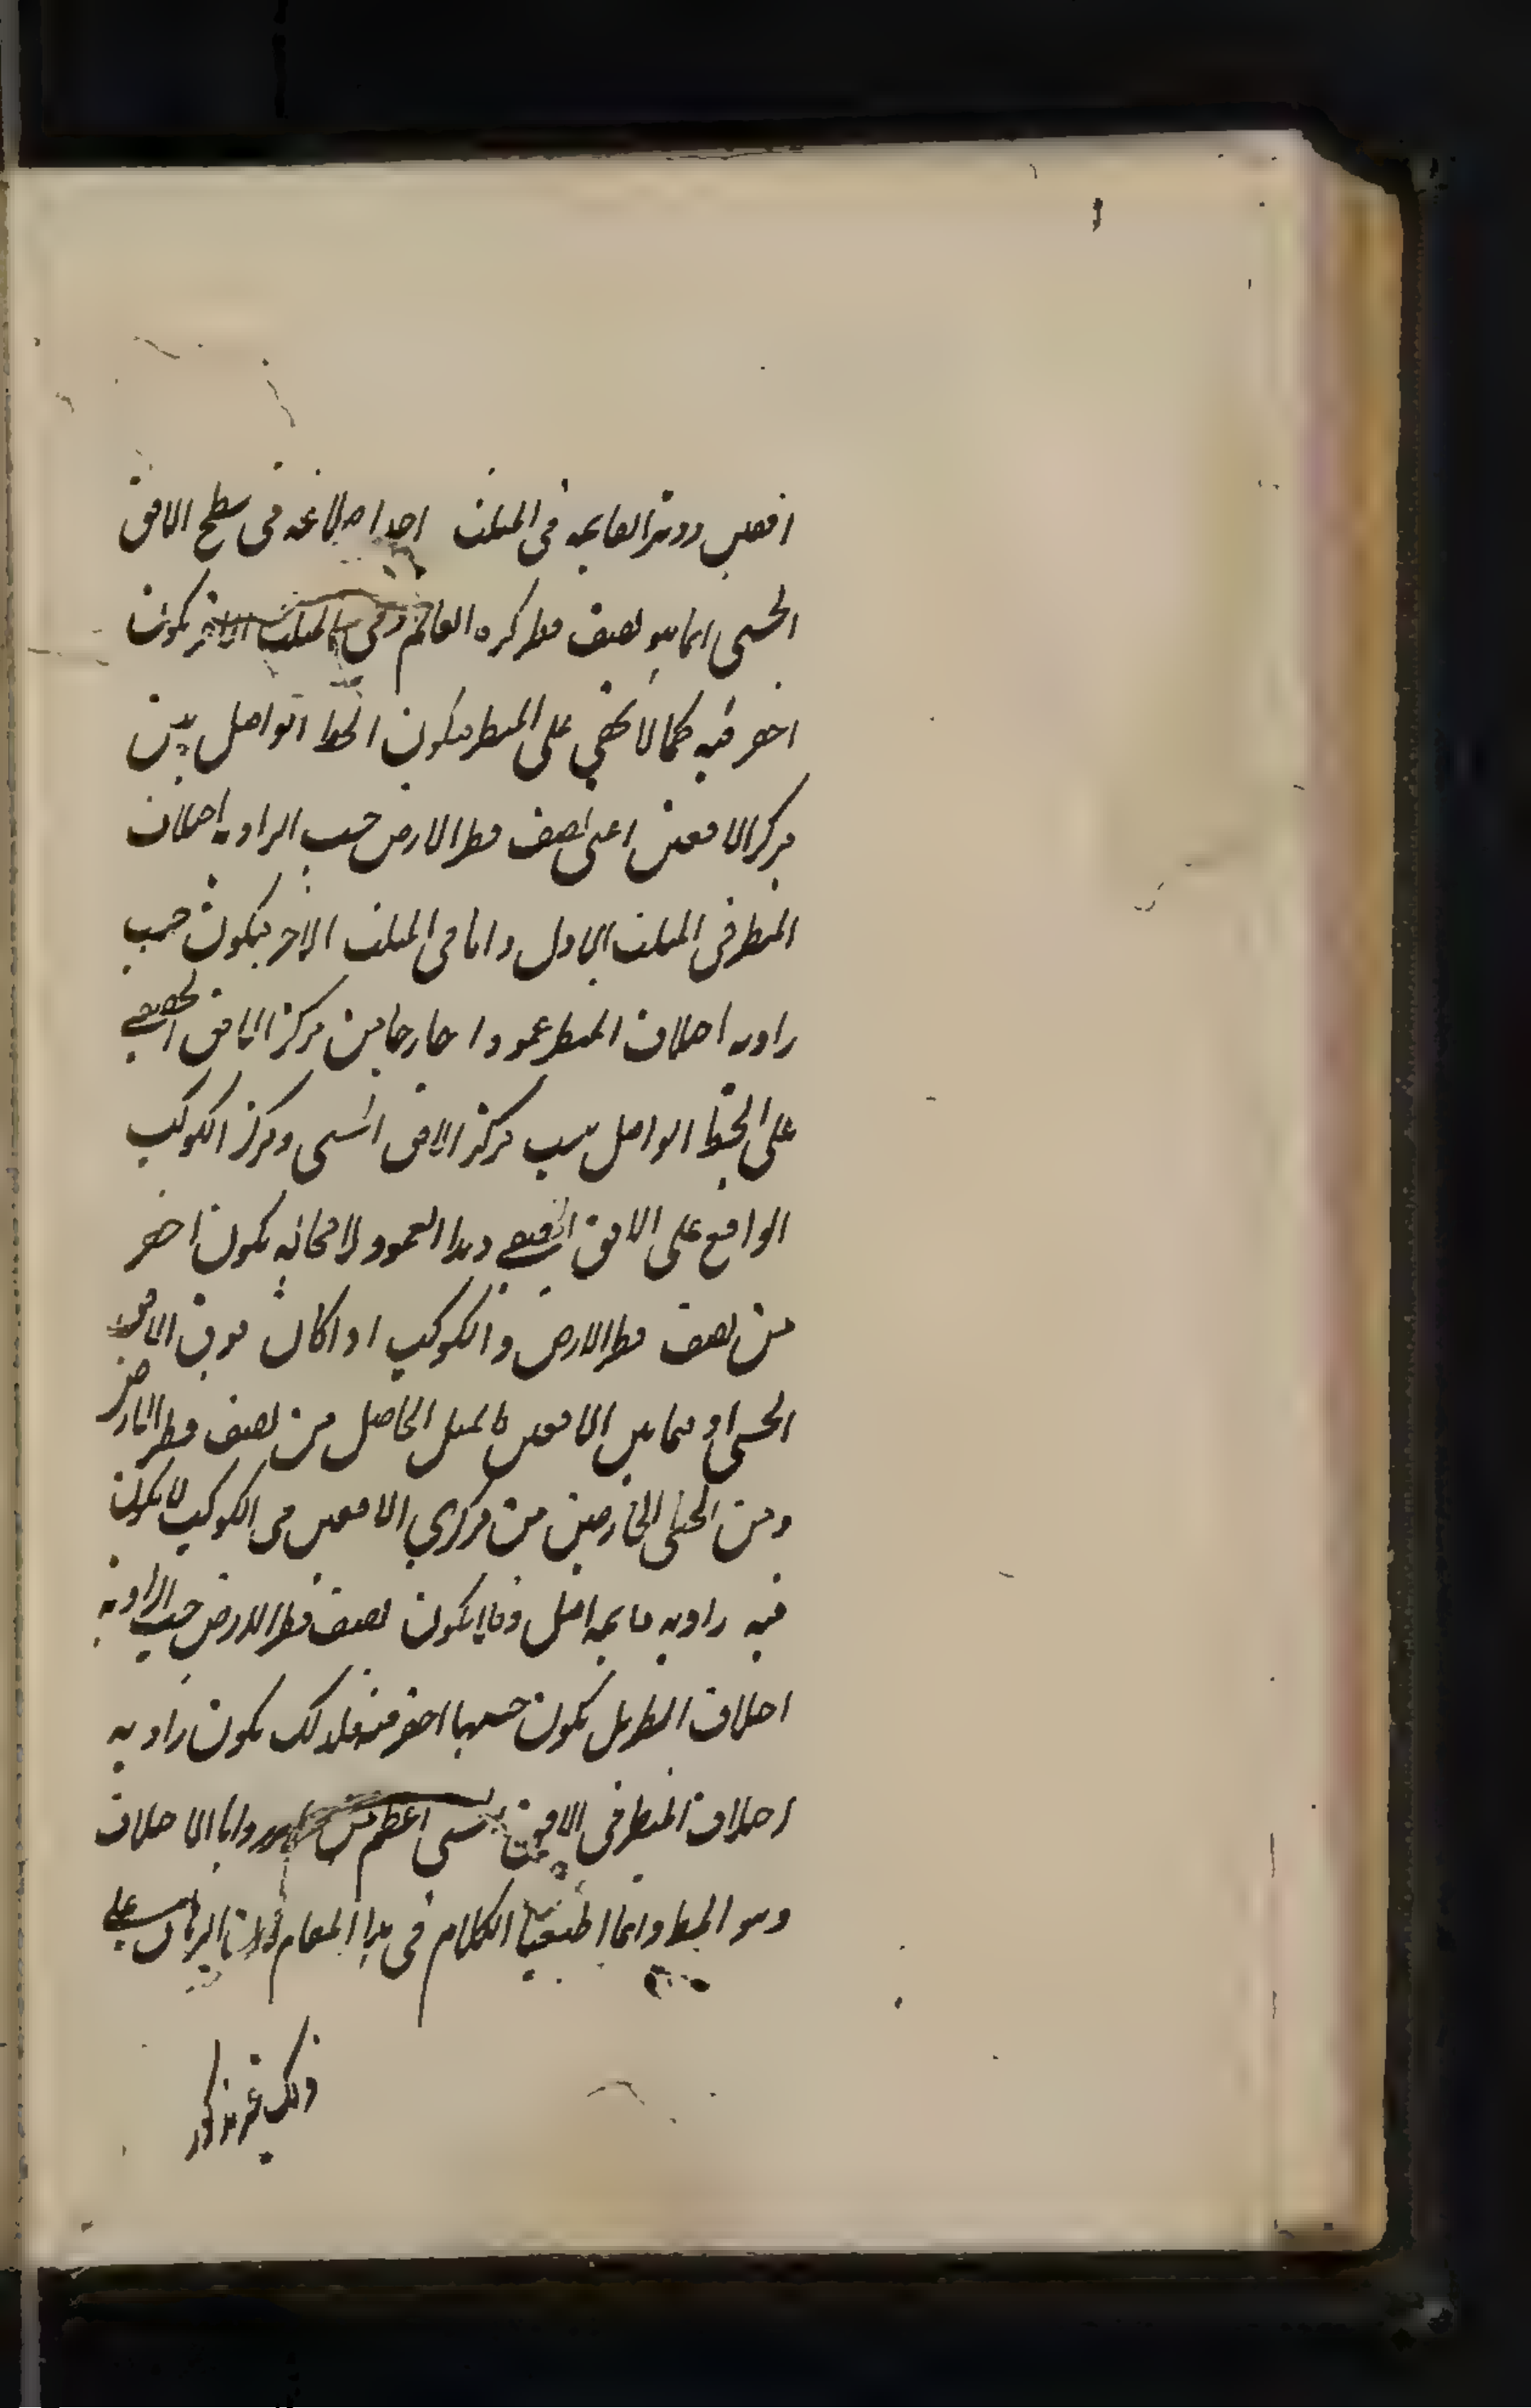 افقين ووتر القايمة في المثلث احد اضلاعه في سطح الافق
الحسى انما هو نصف قطر كرة العالم وفي المثلث الاخر يكون
اخفر فيه كما لا يخفى على المنظر فيكون الخط الواصل بين
مركز الافقين اعنى نصف قطر الارض جيب الزاوية اختلاف
المنظر في المثلث الاول واما في المثلث الاخر فيكون جيب
زاوية اختلاف المنظر عمودا خارجا من مركز الافق الحقيقي
على الخط الواصل بين مركز الافق الحسى ومركز الكوكب
الواقع على الافق الحقيقي وهذا العمود لا محالة يكون اخفر
من نصف قطر الارض والكوكب اذا كان فوق الافق
الحسى او فيما بين الافقين فالمثلث الحاصل من نصف قطر الارض
ومن الخطى الخارجين من مركزي الافقين الى الكوكب لا يكون
فيه زاوية قايمة اصلا ولا يكون نصف قطر الارض جيب الزاوية
اختلاف المنظر بل يكون جيبها اخفر منه فلذلك يكون زاوية
اختلاف المنظر في الافق الحسى اعظم من واما الاختلاف
وهو المنظر وانما اطنبنا الكلام في هذا المقام لان البرهان على
ذلك غير مذكور